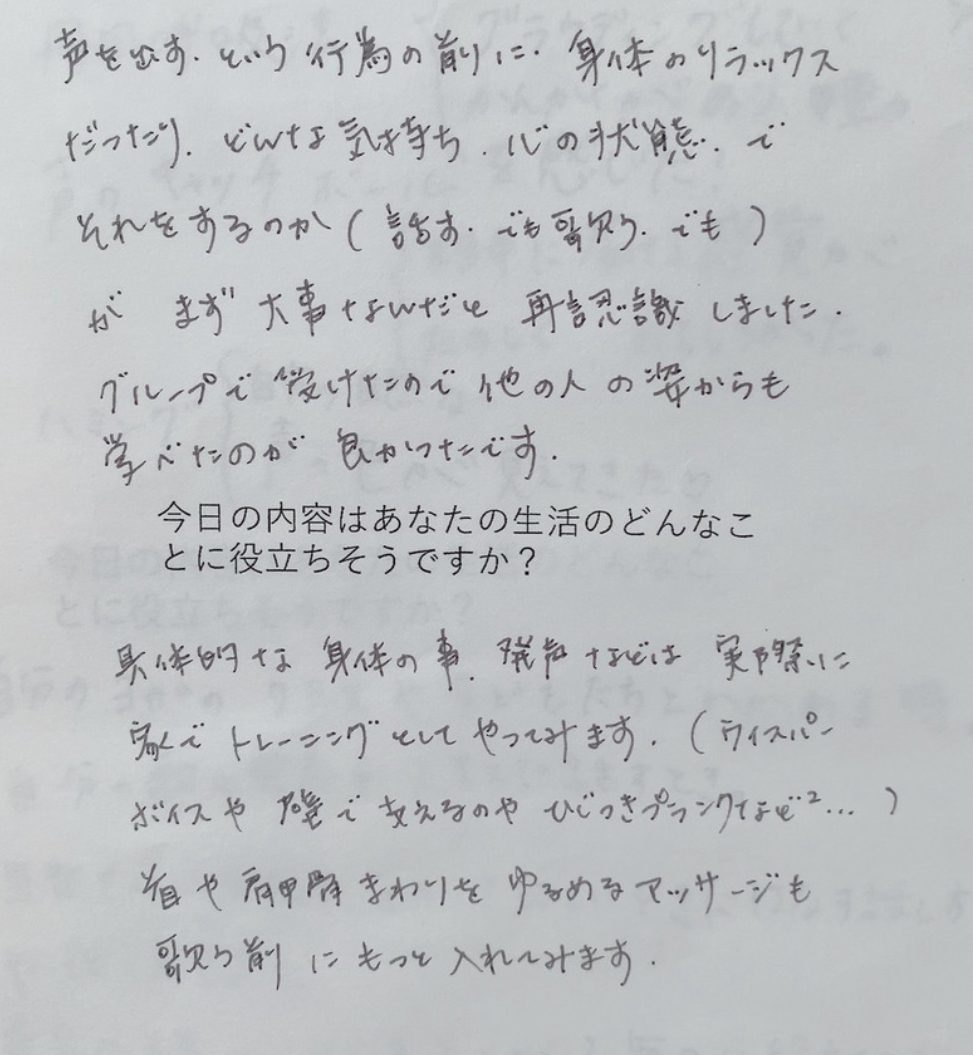 声を出す、という行為の前に、身体のリラックス
だったり、どんな気持ち、心の状態、で
それをするのか(話す、でも歌う、でも)
が まず 大事なんだと 再認識 しました.
グループで受けたので他の人の姿からも
学べたのが 良かったです.
今日の内容はあなたの生活のどんなこ
とに役立ちそうですか?
具体的な 身体の事、発声 などは 実際に
家でトレーニングとしてやってみます.(ウィスパー
ボイスや 壁で支えるのや ひじつきプランクなど²…)
首や肩甲骨まわりを ゆるめるマッサージも
歌う前 に もっと 入れてみます.